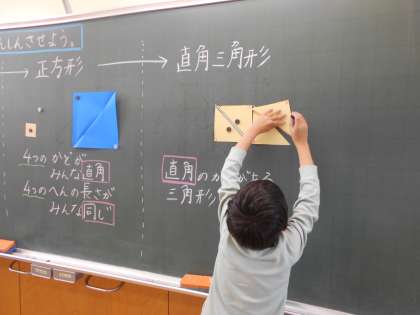 んしんさせよう。
→ 正方形 → 直角三角形
4つのかどが
みんな直角
4つのへんの長さが
みんな同じ
直角のか
三角形